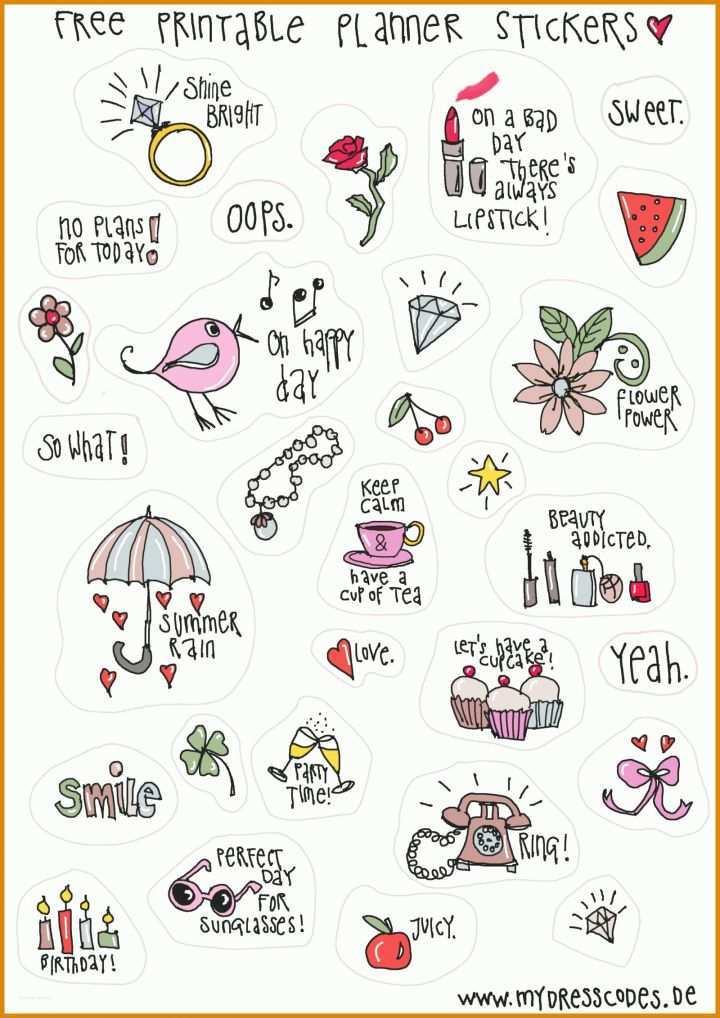 FREE PRINTABLE PLANNER STICKERS
Shine
BRIGHT
ON A BAD
DAY
THERE'S
ALWAYS
LIPSTICK!
SWEET.
NO PLANS
FOR TODAY!
OOPS.
OH HAPPY
DAY
FLOWER
POWER
SO WHAT!
KEEP
CALM
&
HAVE A
CUP OF TEA
BEAUTY
ADDICTED.
SUMMER
RAIN
LOVE.
LET'S HAVE A
CUPCAKE!
YEAH.
SMILE
PARTY
TIME!
RING!
PERFECT
DAY
FOR
SUNGLASSES!
BIRTHDAY!
JUICY.
WWW.MYDRESSCODES.DE